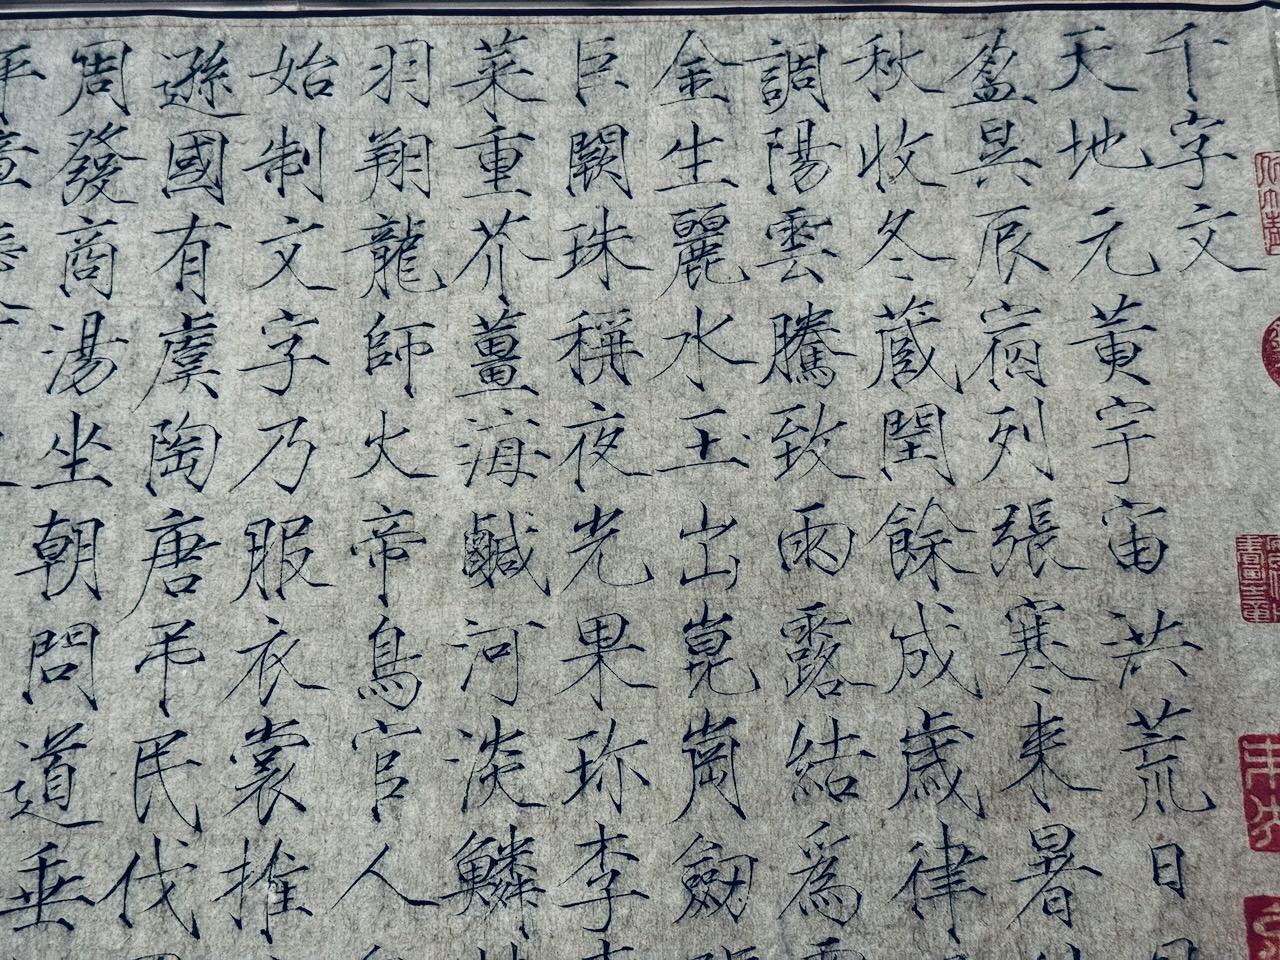 千字文
天地元黄宇宙洪荒日
盈昃辰宿列張寒来暑
秋收冬蔵閏餘成歳律
調陽雲騰致雨露結爲
金生麗水玉出崑崗劒
巨闕珠稱夜光果珎李
菜重芥薑海鹹河淡鱗
羽翔龍師火帝鳥官人
始制文字乃服衣裳推
遜國有虞陶唐弔民伐
周發商湯坐朝問道垂